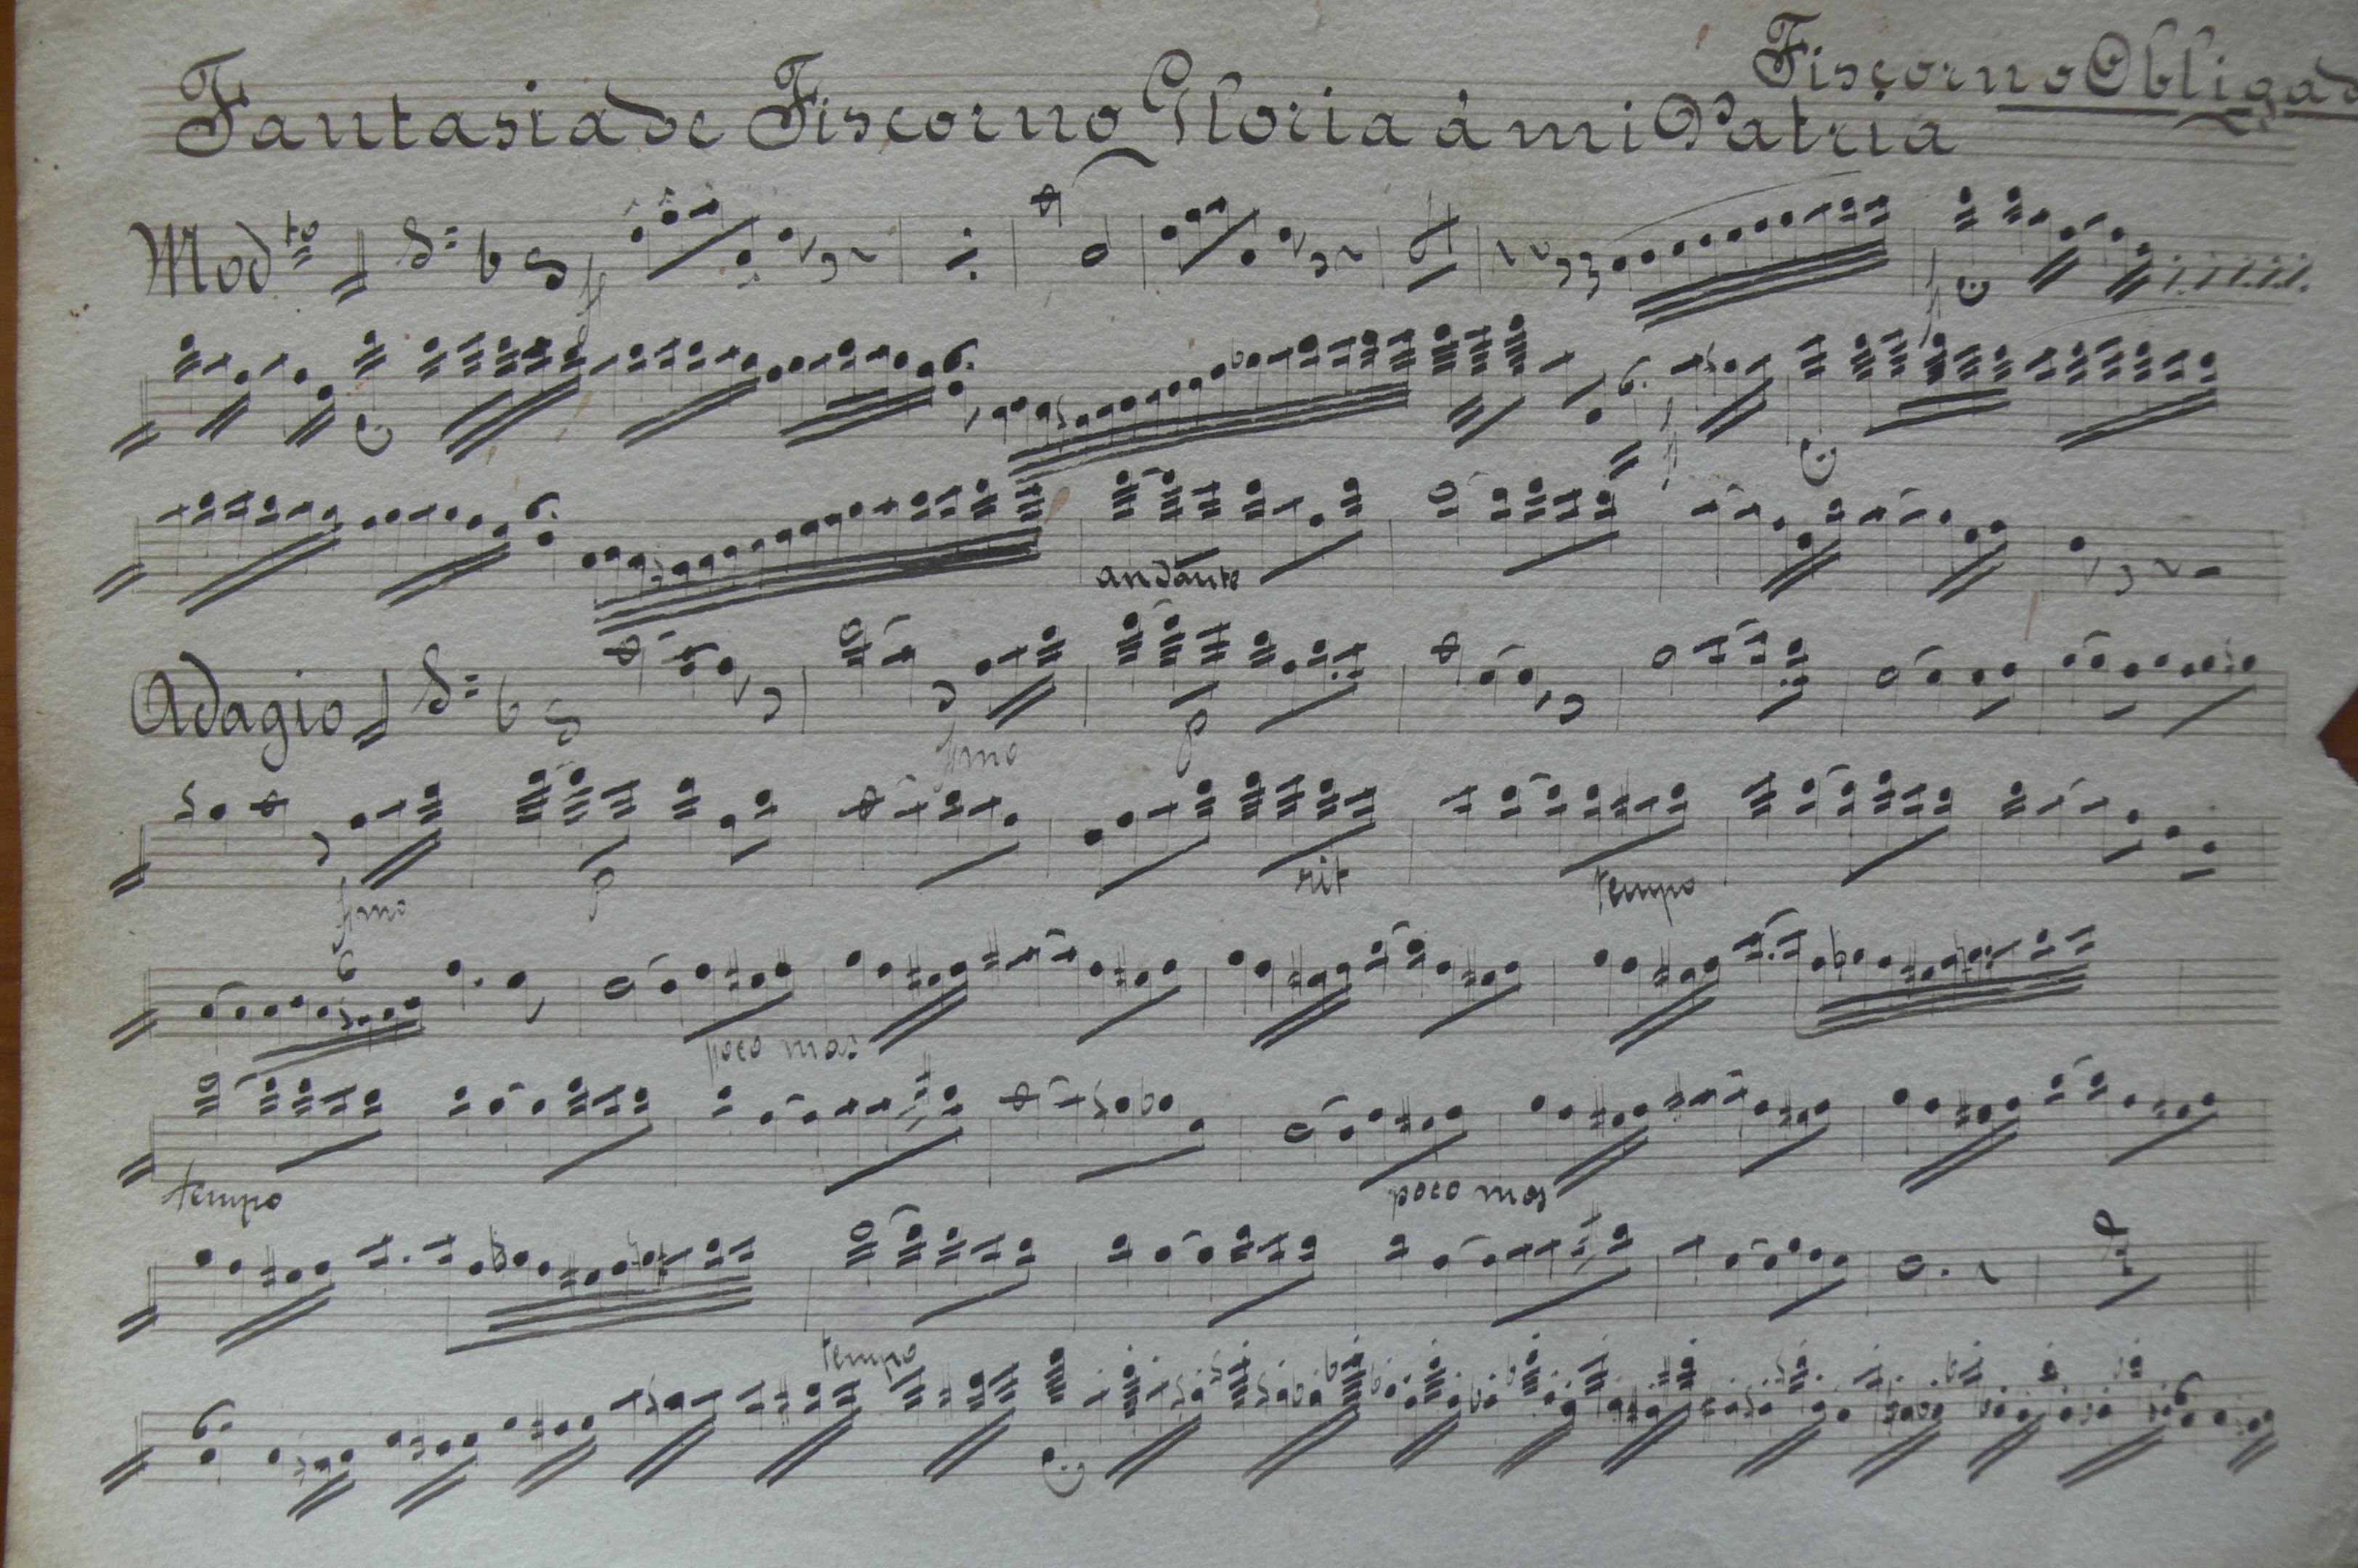 Fiscorno Obligad
Fantasia de Fiscorno Gloria á mi Patria
Modto
ff
andante
Adagio
p
p
rit
tempo
6
poco mas
tempo
poco mas
tempo